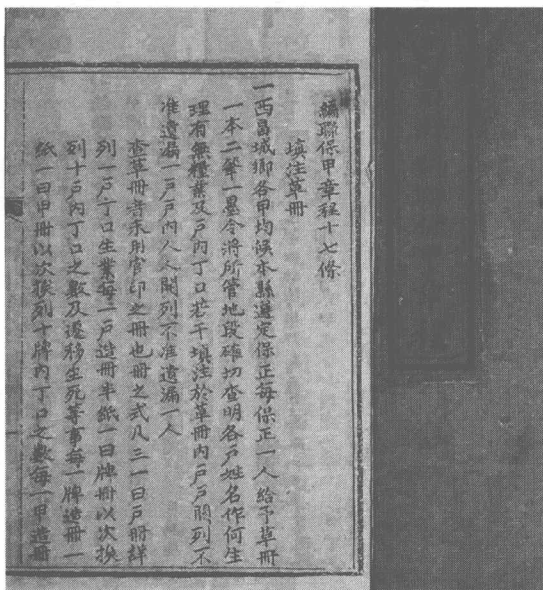 編聯保甲章程十七條
填注草冊
一西昌城鄉各甲均候本縣選定保正每保正一人給予草冊
一本二筆一墨令將所管地段確切查明各戶姓名作何生
理有無糧業及戶內丁口若干填注於草冊內戶戶開列不
准遺漏一戶戶內人人開列不准遺漏一人
查草冊者未用官印之冊也冊之式凡三一曰戶冊詳
列一戶丁口生業每一戶造冊半紙一曰牌冊以次挨
列十戶內丁口之數及遷移生死等事每一牌造冊一
紙一曰甲冊以次挨列十牌內丁口之數每一甲造冊